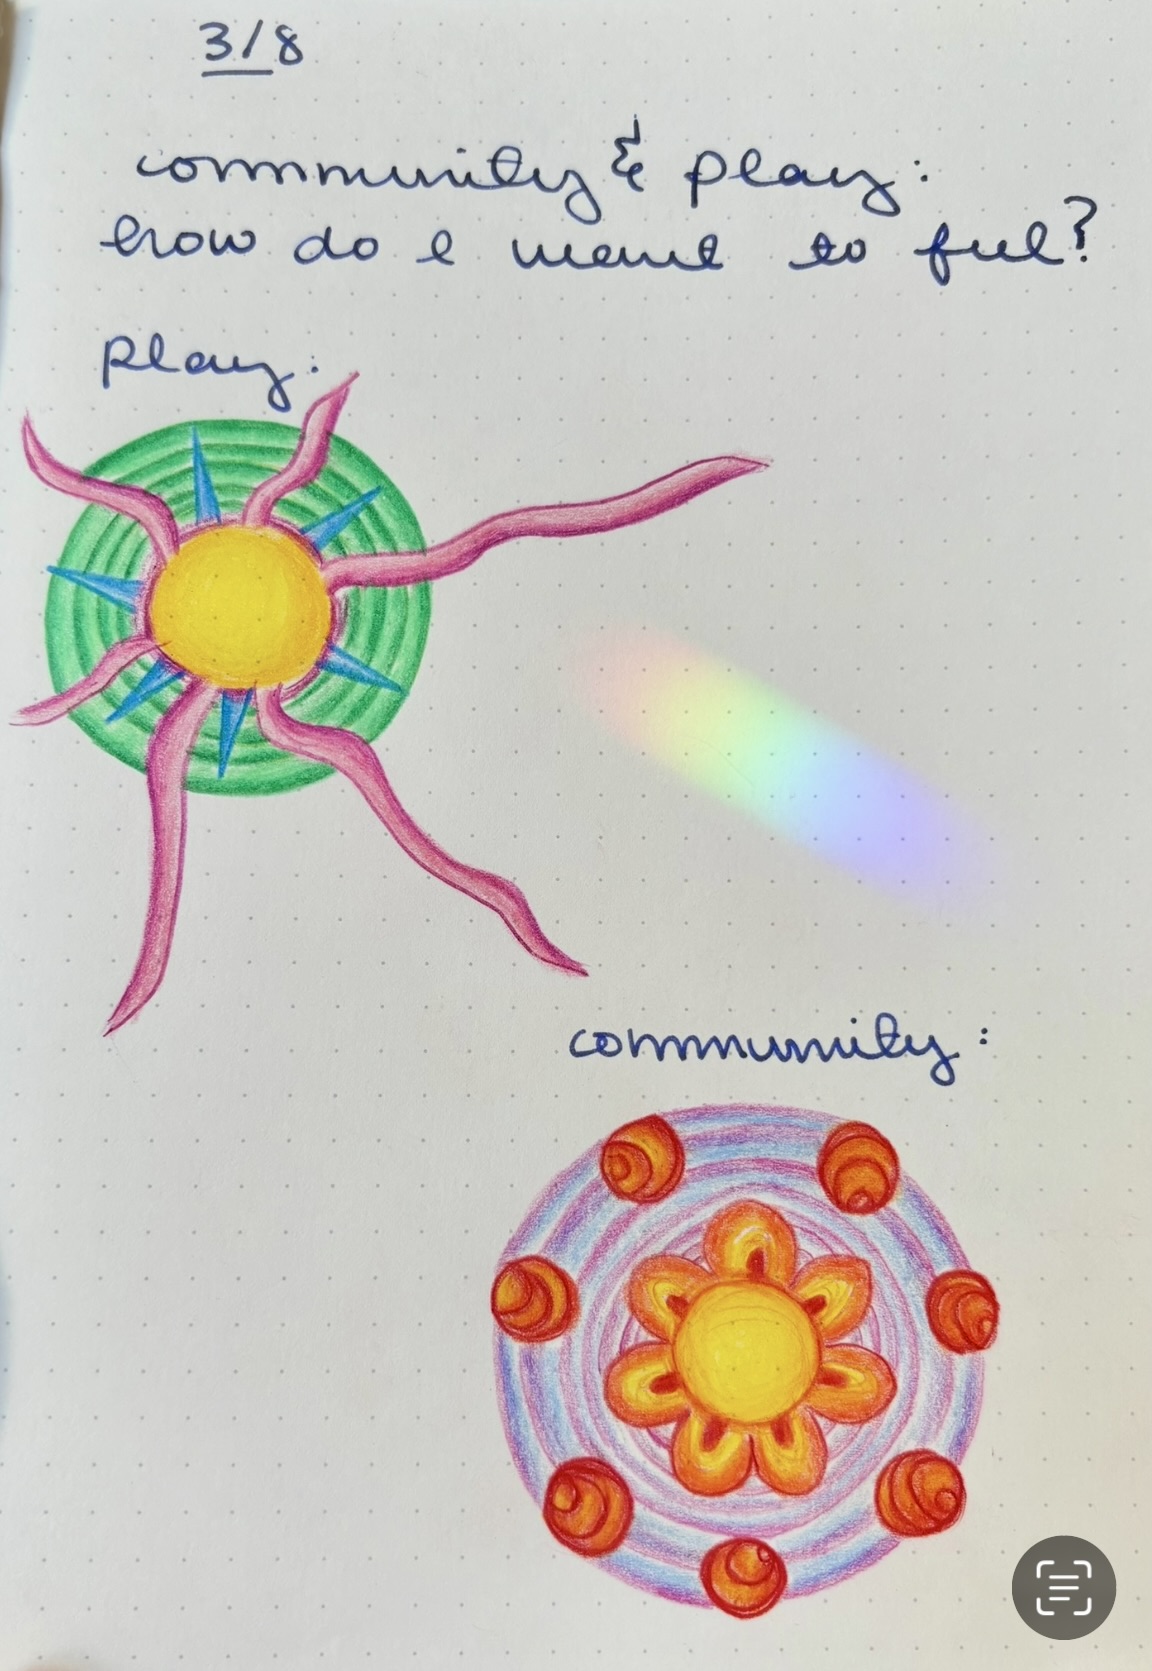 3/8
community & play:
how do I want to feel?
Play:
community: